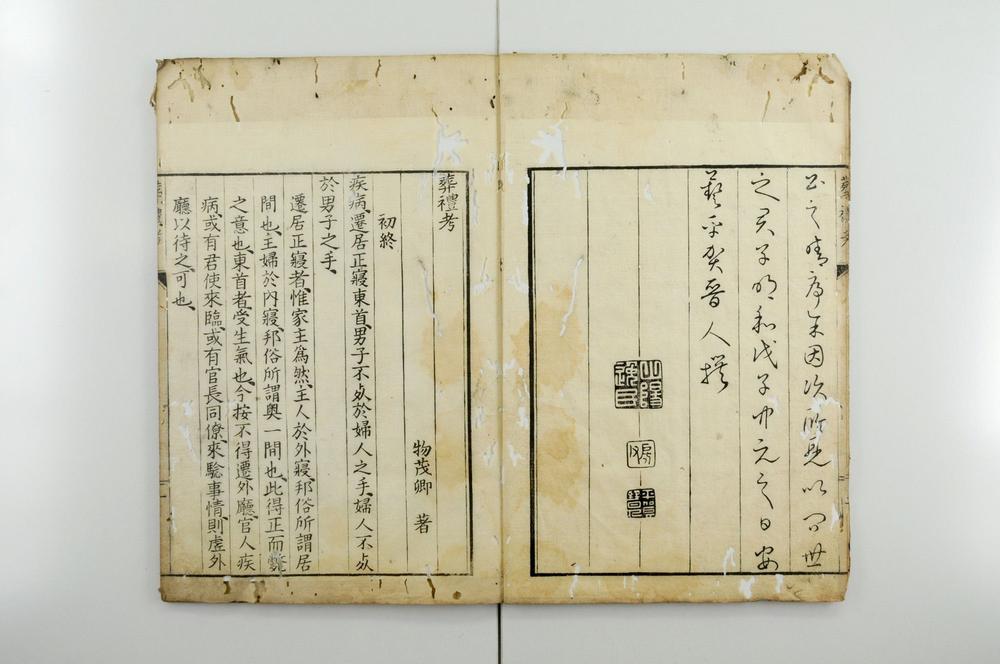 之君子明和戊子中元之日安
藝平賀晋人撰
葬禮考
物茂卿 著
初終
疾病、遷居正寢東首、男子不㱕於婦人之手、婦人不㱕
於男子之手、
遷居正寢者、惟家主爲然、主人於外寢、邦俗所謂居
間也、主婦於內寢、邦俗所謂奧一間也、此得正而斃
之意也、東首者、受生氣也、今按不得遷外廳、官人疾
病、或有君使來臨、或有官長同僚、來驗事情、則虛外
廳以待之、可也、